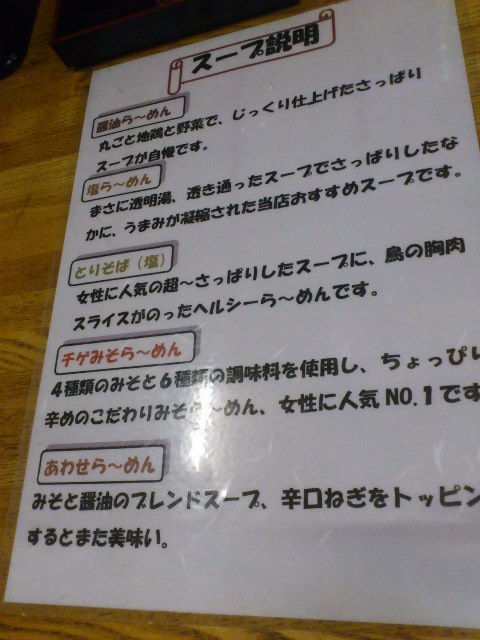 スープ説明
醤油ら～めん
丸ごと地鶏と野菜で、じっくり仕上げたさっぱり
スープが自慢です。
塩ら～めん
まさに透明湯、透き通ったスープでさっぱりしたな
かに、うまみが凝縮された当店おすすめスープです。
とりそば（塩）
女性に人気の超～さっぱりしたスープに、鳥の胸肉
スライスがのったヘルシーら～めんです。
チゲみそら～めん
４種類のみそと６種類の調味料を使用し、ちょっぴり
辛めのこだわりみそら～めん、女性に人気NO.１です
あわせら～めん
みそと醤油のブレンドスープ、辛口ねぎをトッピン
するとまた美味い。